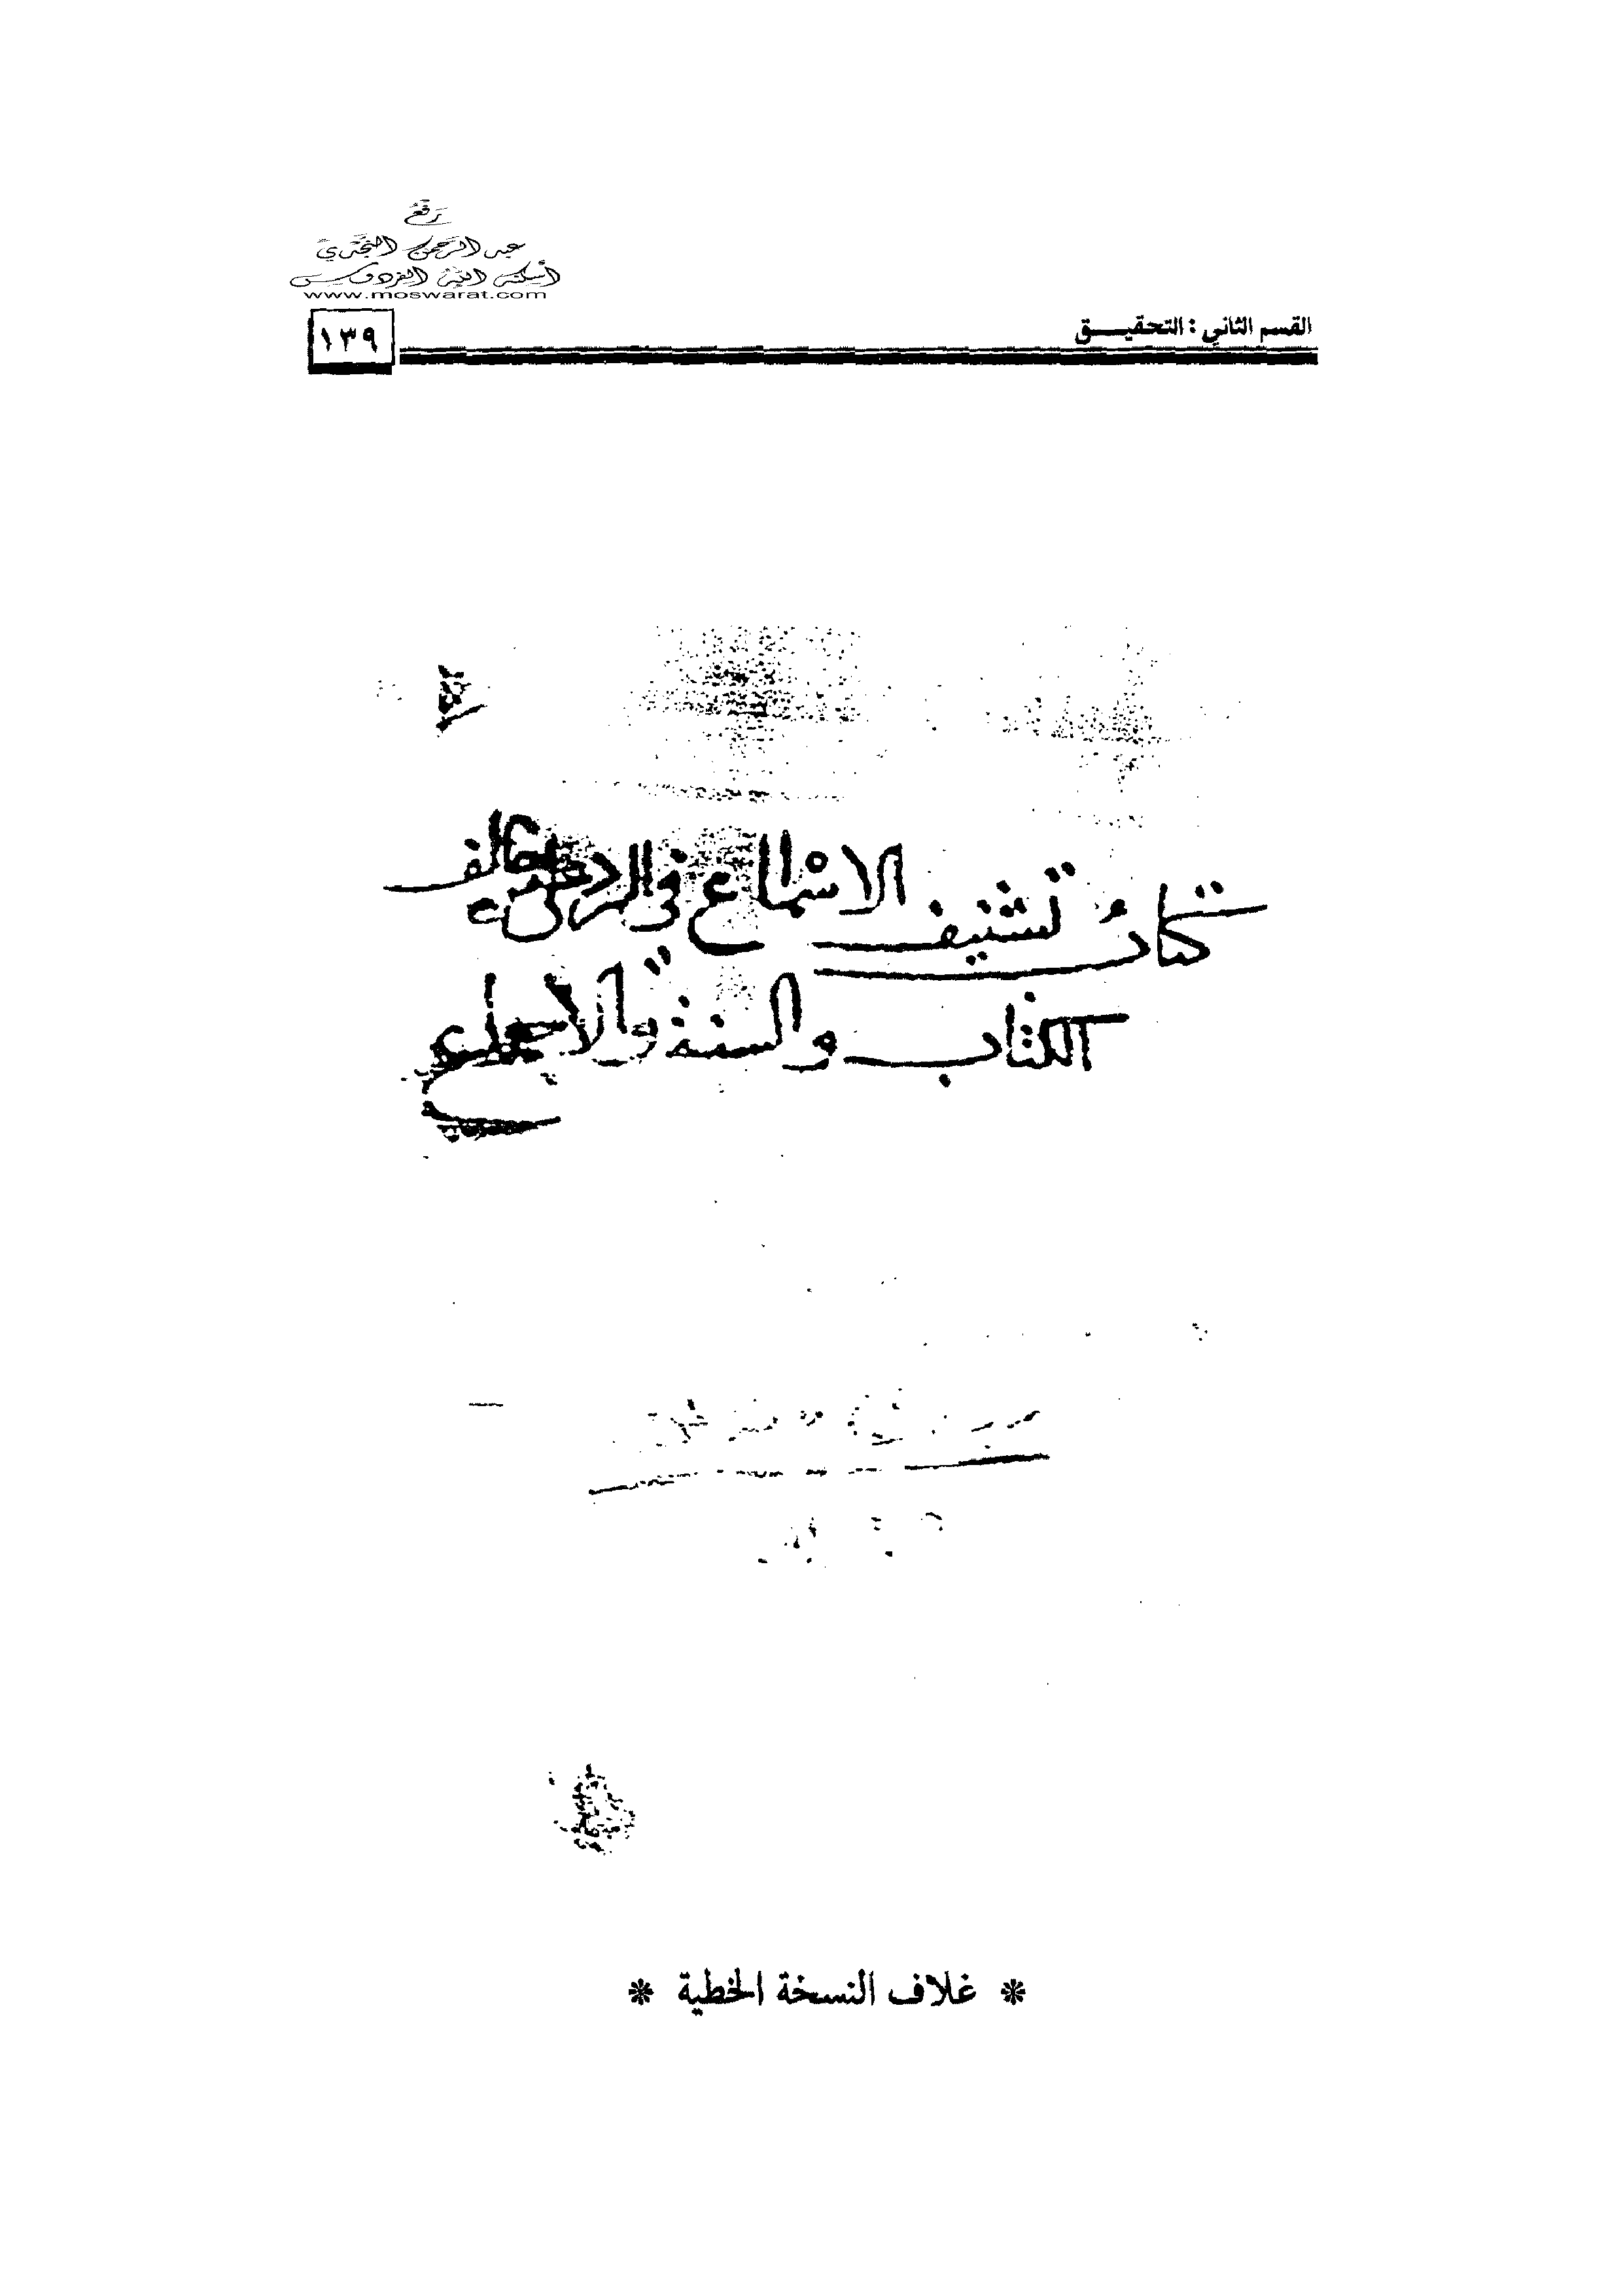 رفع
عبد الرحمن النجدي
أسكنه الله الفردوس
www.moswarat.com
القسم الثاني : التحقيـــق
١٣٩
كتاب تشنيف الاسماع في الرد على من خالف
الكتاب والسنة والاجماع
* غلاف النسخة الخطية *